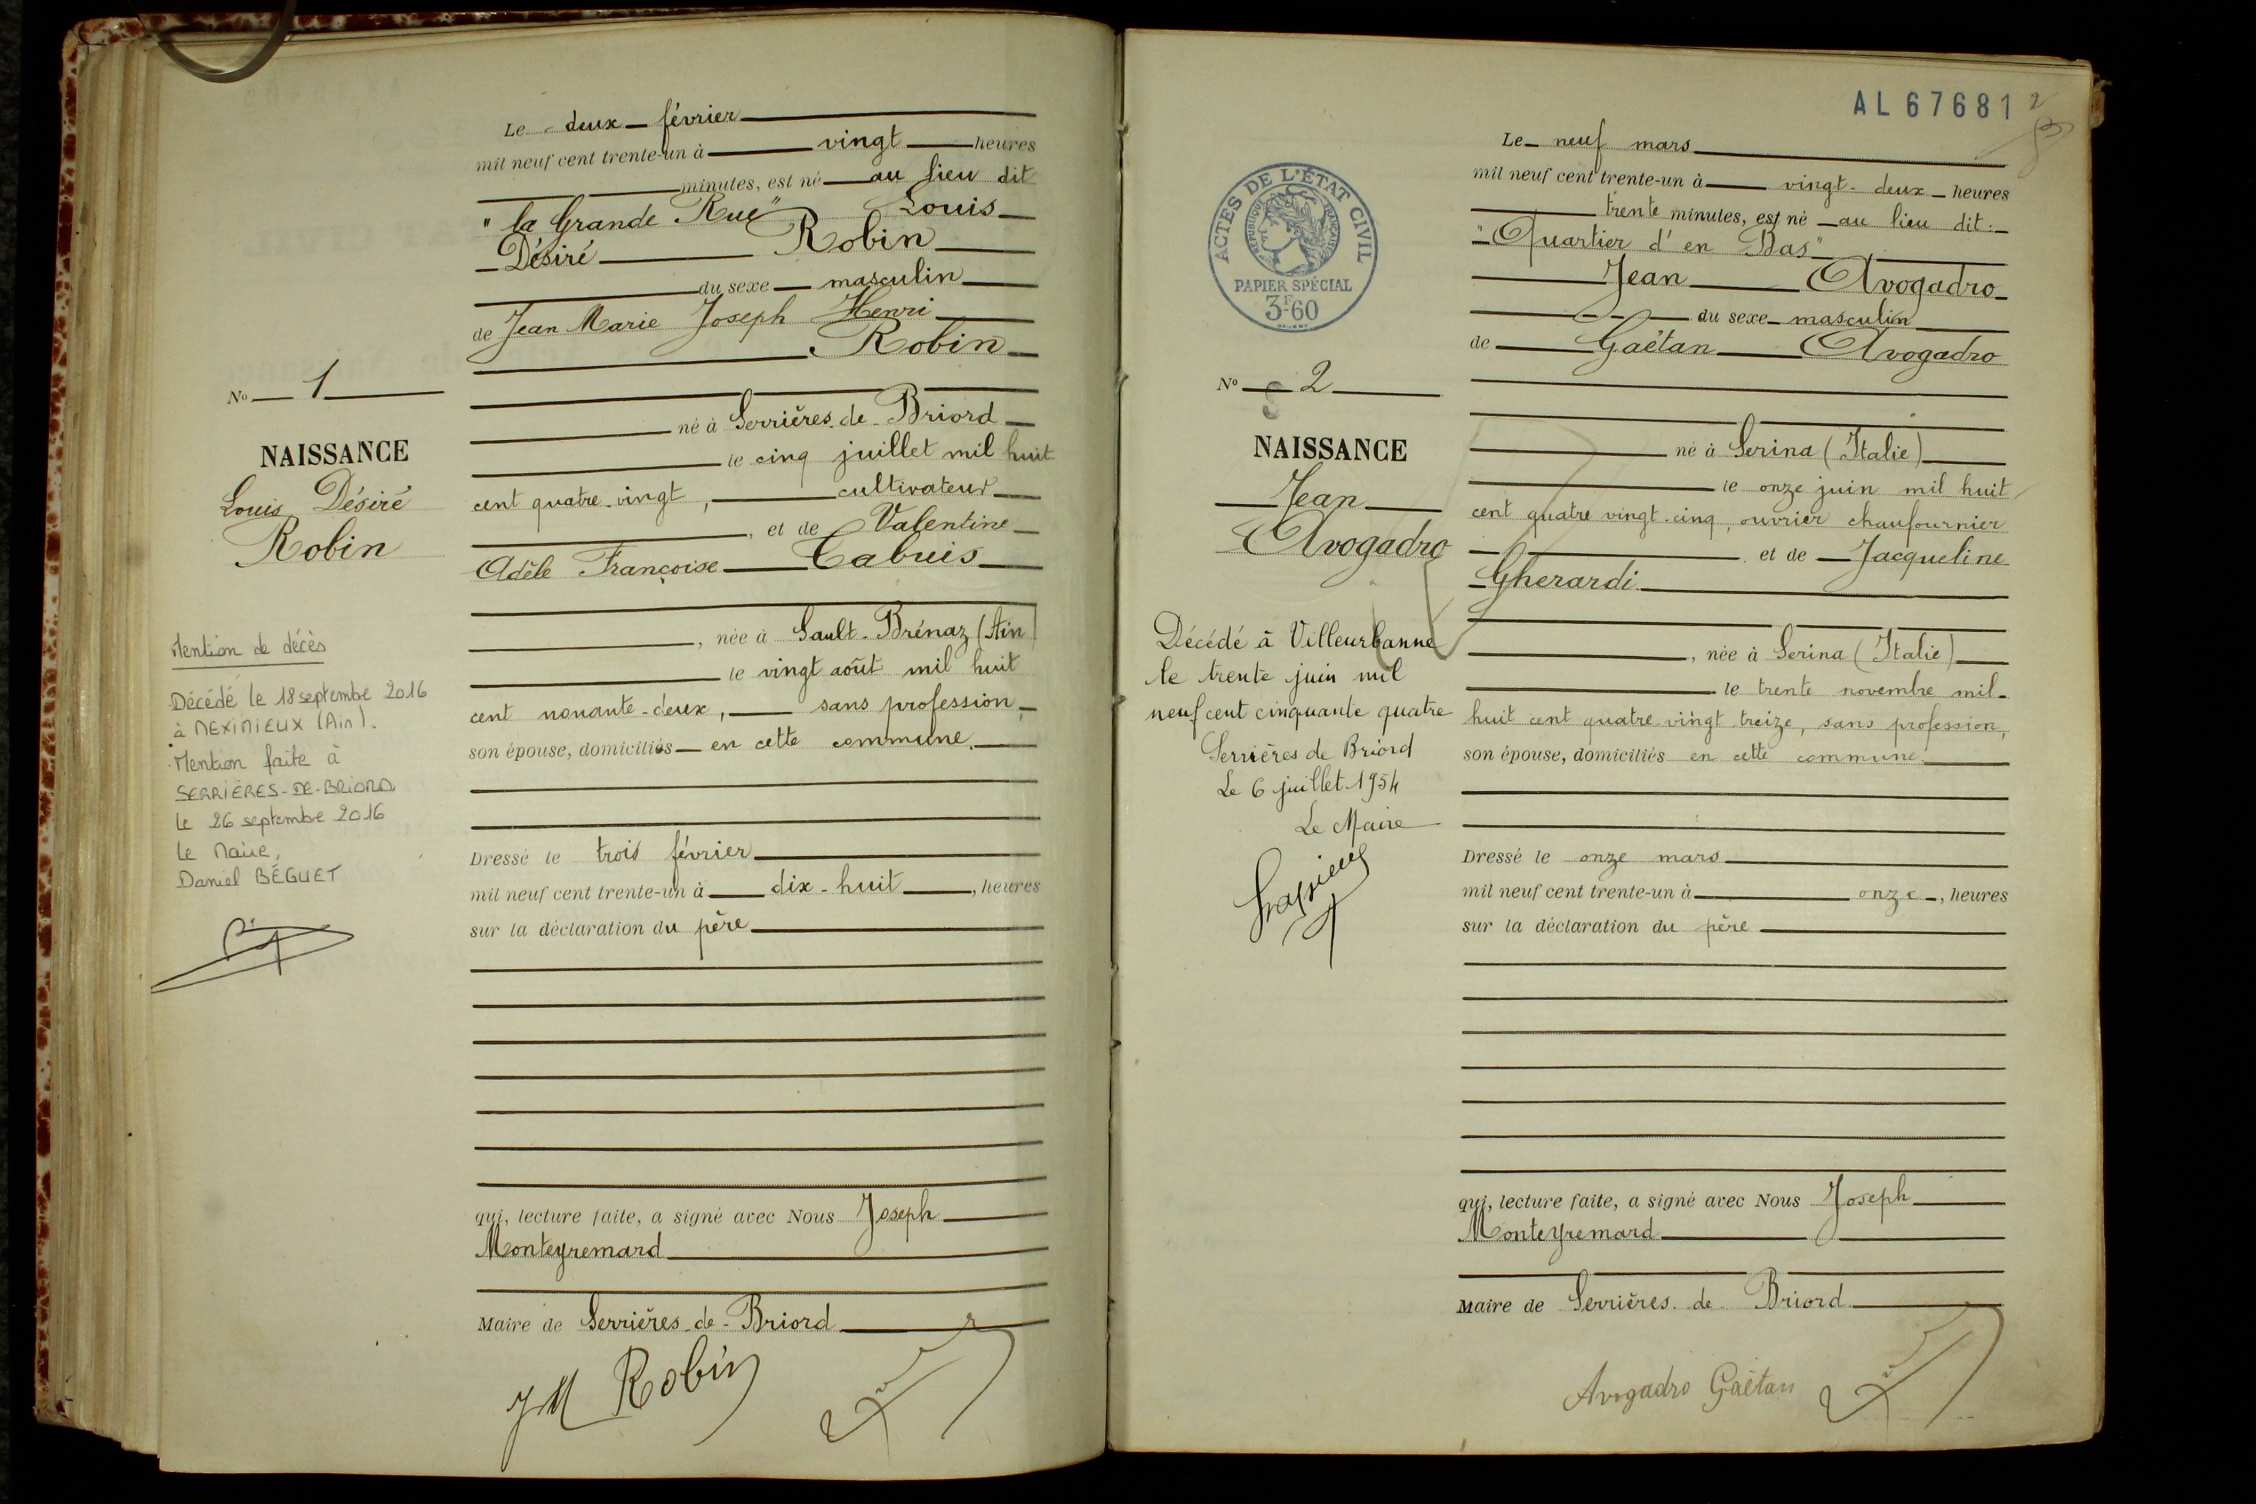 Le deux février
mil neuf cent trente-un à vingt heures
minutes, est né au lieu dit
"la Grande Rue" Louis
Désiré Robin
du sexe masculin
de Jean Marie Joseph Henri
Robin
né à Serrières-de-Briord
le cinq juillet mil huit
cent quatre-vingt, cultivateur
, et de Valentine
Adèle Françoise Cabuis
, née à Sault-Brénaz (Ain)
le vingt août mil huit
cent nonante-deux, sans profession,
son épouse, domiciliés en cette commune.
Dressé le trois février
mil neuf cent trente-un à dix-huit, heures
sur la déclaration du père
qui, lecture faite, a signé avec Nous Joseph
Monteyremard
Maire de Serrières-de-Briord
JM Robin
No 1
NAISSANCE
Louis Désiré
Robin
Mention de décès
Décédé le 18 septembre 2016
à MEXIMIEUX (Ain).
Mention faite à
SERRIÈRES-DE-BRIORD
le 26 septembre 2016
Le Maire,
Daniel BÉGUET
AL 67681
2
Le neuf mars
mil neuf cent trente-un à vingt-deux heures
trente minutes, est né au lieu dit:
"Quartier d'en Bas"
Jean Avogadro
du sexe masculin
de Gaétan Avogadro
né à Serina (Italie)
le onze juin mil huit
cent quatre vingt-cinq, ouvrier chaufournier
et de Jacqueline
Gherardi
, née à Serina (Italie)
le trente novembre mil
huit cent quatre vingt treize, sans profession,
son épouse, domiciliés en cette commune.
Dressé le onze mars
mil neuf cent trente-un à onze, heures
sur la déclaration du père
qui, lecture faite, a signé avec Nous Joseph
Monteyremard
Maire de Serrières-de-Briord
Avogadro Gaétan
ACTES DE L'ÉTAT CIVIL
RÉPUBLIQUE FRANÇAISE
PAPIER SPÉCIAL
3F60
No 2
NAISSANCE
Jean
Avogadro
Décédé à Villeurbanne
le trente juin mil
neuf cent cinquante quatre
Serrières de Briord
Le 6 juillet 1954
Le Maire